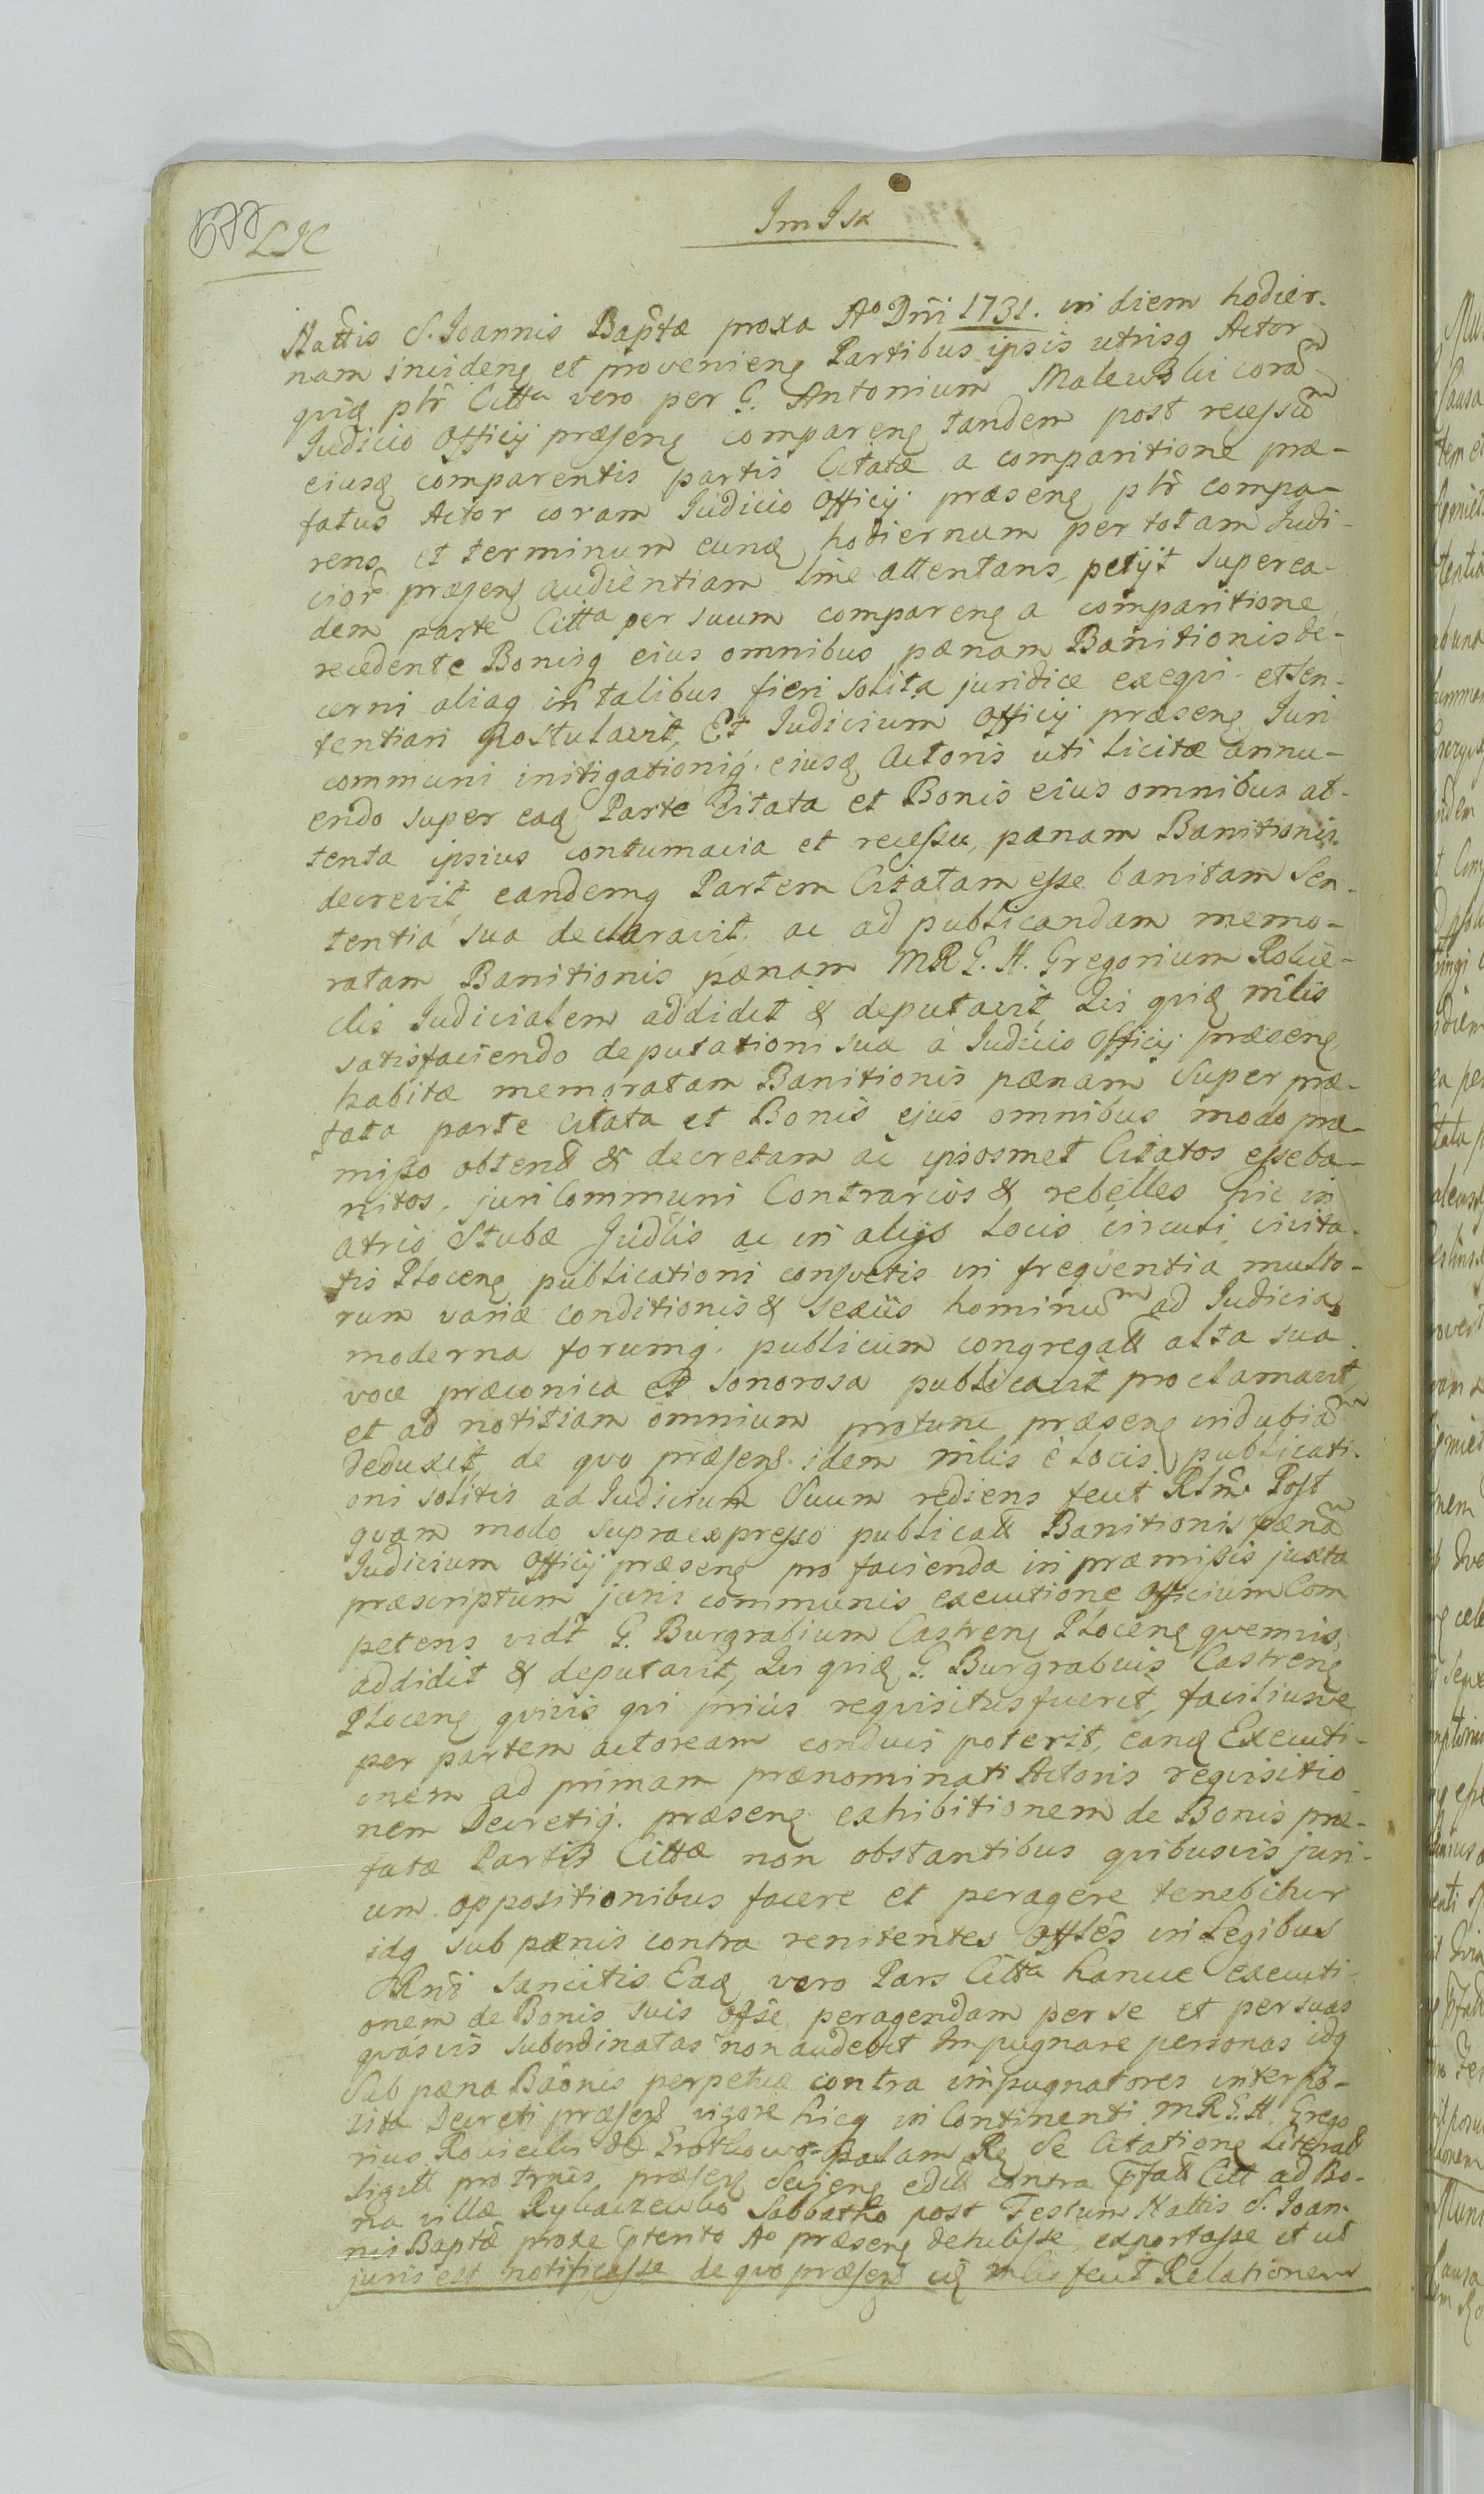 Im Isa
LIC
Nattis S. Joannis Baptæ proxa Aº Dni 1731. in diem hodier-
nam incideng et provenieng Partibus ipsis utrisq Actor
quiq phr Citta vero per G. Antonium Malewski coram
Iudicio Officij præseng compareng tandem post recessum
eiusq comparentis partis Citatæ a comparitione præ-
fatus Actor coram Iudicio Officij præseng phr compa-
rens et terminum eunq hodiernum per totam Iudi-
cior præseng audientiam sine attentans, petijt super ea-
dem parte Citta per suum compareng a comparitione
recedente Bonisq eius omnibus pænam Banitionis de-
cerni aliaq in talibus fieri solita juridice exeqvi et sen-
tentiari Postulavit, Et Iudicium Officij præseng Iuri
communi instigationiq. eiusq Actoris uti licitæ annu-
endo super eaq Parte Citata et Bonis eius omnibus at-
tenta ipsius contumacia et recessu, pænam Banitionis
decrevit, eandemq Partem Citatam esse banitam Sen-
tentia sua declaravit, ac ad publicandam memo-
ratam Banitionis pænam MRG. H. Gregorium Robie-
clis Iudicialem addidit & deputavit, Qui quiq mlis
satisfaciendo deputationi sua à Iudicio Officij præseng
habitæ memoratam Banitionis pænam super præ-
fata parte citata et Bonis ejus omnibus modo præ-
misso obtend & decretam ac ipsosmet Citatos esse ba-
nitos, juri Communi Contrarios & rebelles hic in
atrio Stubæ Judlis ac in alijs locis circuli civita-
tis Ploceng publicationi consvetis in freqventia multo-
rum variæ conditionis & sexûs hominum ad Iudicia
moderna forumq. publicum congregatt alta sua
voce præconica et sonorosa publicavit proclamavit
et ad notitiam omnium protunc præseng indubiam
Deduxit, de qvo præseng. idem mlis è locis publicati-
oni solitis ad Iudicium Suum rediens fecit Rlm. Post
qvam modo supraexpresso publicatt Banitionis pænam
Iudicium Officij præseng pro facienda in præmissis juxta
præscriptum juris communis executione Officium Com
petens vidt G. Burgrabium Castreng Ploceng qvemvis,
addidit & deputavit, Qui quiq G. Burgrabius Castreng
Ploceng qvivis qvi prius reqvisitus fuerit, faciliusve
per partem actoream conduci poterit, eanq Executi-
onem ad primam prænominati Actoris reqvisitio
nem Decretiq. præseng exhibitionem de Bonis præ-
fatæ Partis Cittæ non obstantibus qvibusvis juri-
um oppositionibus facere et peragere tenebitur
idq sub pænis contra renitentes Offles in Legibus
Rni sancitis Eaq vero Pars Citta hancce executi-
onem de Bonis suis offse peragendam per se et per suas
qvásvis subordinatas non audebit Impugnare personas idq
Sub pæna Bãonis perpetuæ contra impugnatores interpo-
sita Decreti præsend vigore hicq in Continenti MRG. H. Grego
rius Robieclis de palam Rg Se Citatione Literal
sigill pro trnis præseng Scijeng edit contra pfatt Citt ad Bo-
na villæ Sabbatho post Festum Nattis S. Joan-
nis Baptæ proxe ptento Aº præseng detulisse exportasse et ut
juris est notificasse de qvo præseng mlis fecit Relationem